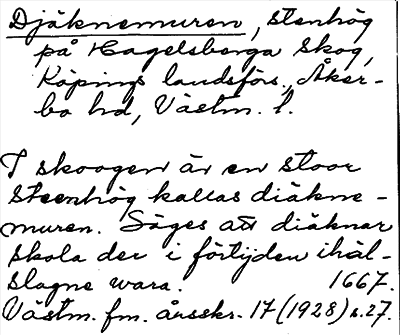 Djäknemuren, stenhög
på Hagelsberga skog,
Köpings landsförs., Åker-
bo hd, Västm. l.
I skoogen är en stoor
steenhög kallas diäkne-
muren. Säges att diäknar
skola der i förtijden ihäl-
slagne wara. 1667.
Västm. fm. årsskr. 17 (1928) s. 27.